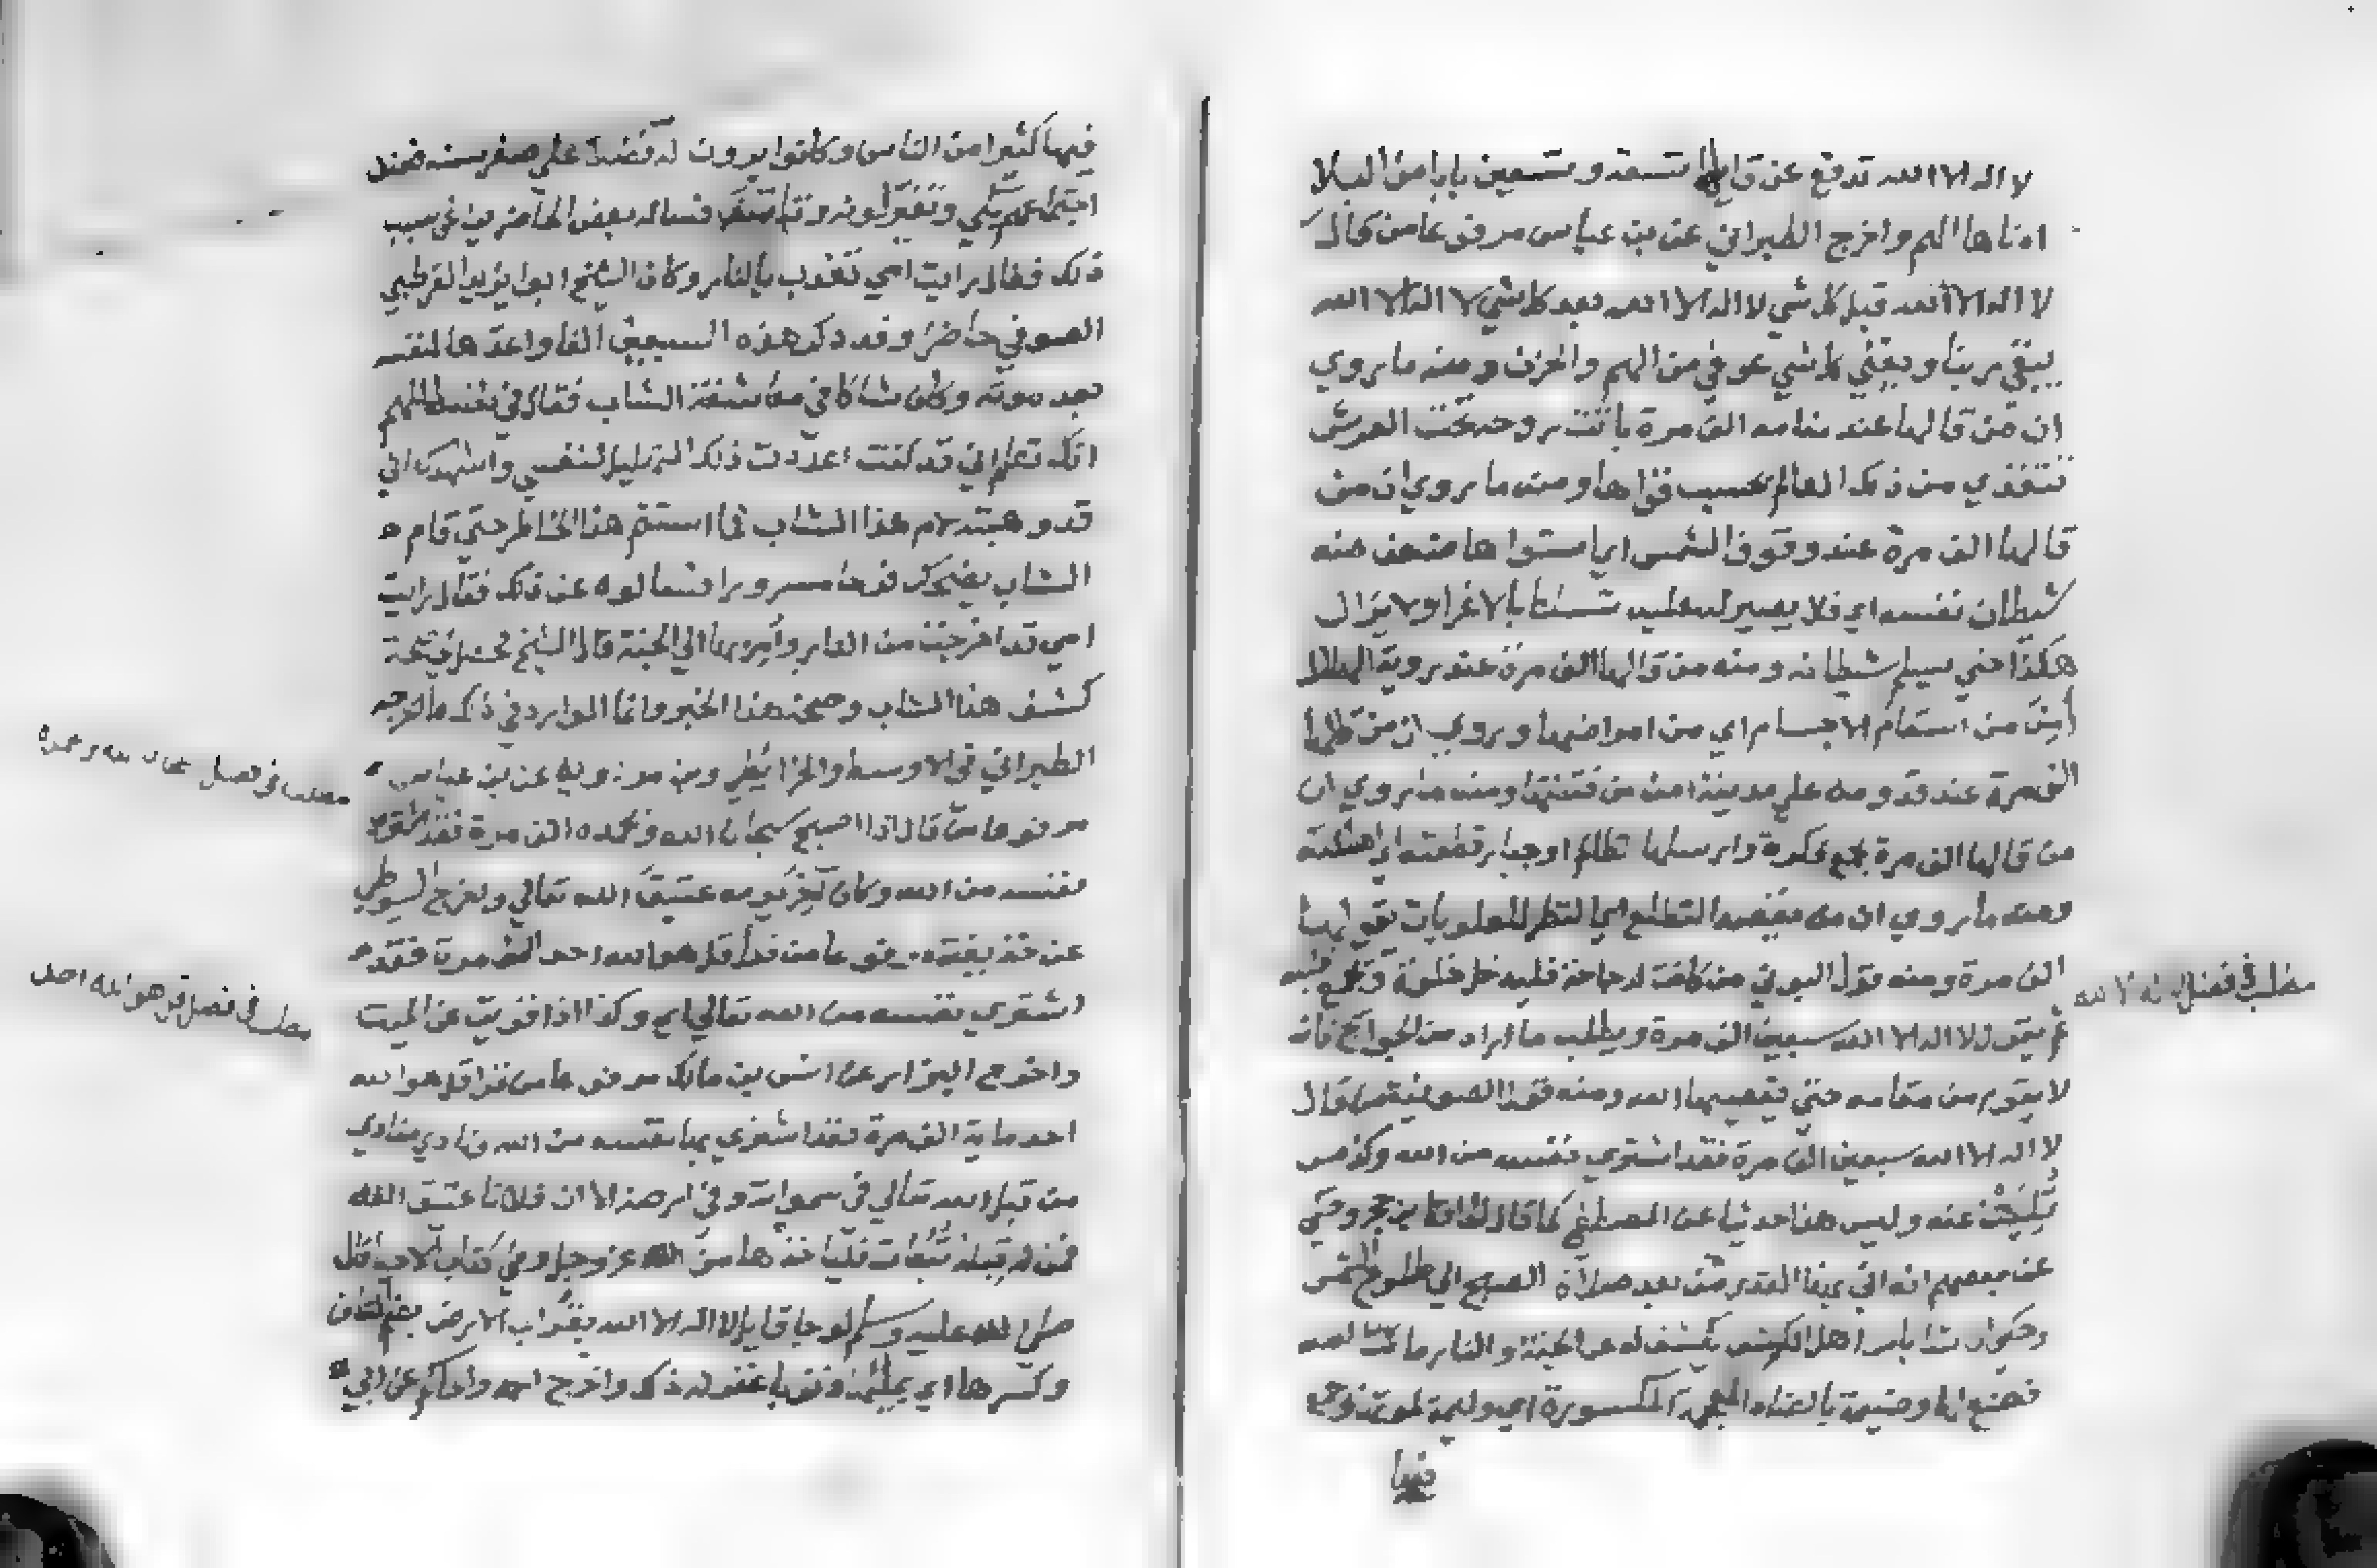 لا اله الا الله تدفع عن قايلها تسعة وتسعين بابا من البلا
ادناها الهم واخرج الطبراني عن بن عباس مرفوعا من قال
لا اله الا الله قبل كل شي لا اله الا الله بعد كل شي لا اله الا الله
يبقي ربنا ويفني كل شي عوفي من الهم والحزن ومنه ما روي
ان من قالها عند منامه الف مرة باتت روحه تحت العرش
تتغذي من ذلك العالم بحسب قواها ومنه ما روي ان من
قالها الف مرة عند وقوف الشمس اي استواها ضعف منه
شيطان نفسه اي فلا يصير له عليه تسلط بالاغرا ولا يزال
هكذا حتي يسلم شيطانه ومنه من قالها الف مرة عند روية الهلال
أمن من اسقام الاجسام اي من امراضها وروي ان من قالها
الف مرة عند قدومه علي مدينة امن من فتنتها ومنه ما روي ان
من قالها الف مرة بجمع فكرة وارسلها لظالم او جبار قطعته اي اهلكته
ومنه ما روي ان من قالها بقصد التطلع اي النظر للعلويات يقولها
الف مرة ومنه قول البوني من كانت له حاجة فليدخل خلوة
ثم يقول لا اله الا الله سبعين الف مرة ويطلب ما اراد من الحوايج فانه
لا يقوم من مقامه حتي يقضيها الله ومنه قول الصوفية من قال
لا اله الا الله سبعين الف مرة فقد اشتري نفسه من الله وكذا من
قيلت عنه وليس هذا حديثا عن المصطفي كما قال الحافظ بن حجر وحكي
عن بعضهم انه اتي بهذا القدر من بعد صلاة الصبح الي طلوع الشمس
وحكي ان شابا من اهل الكشف يكشف له عن الجنة والنار ماتت امه
فصنع لها وضيمة بالضاد المعجمة المكسورة اي وليمة لموتها ودعي
فيها
مطلب في فضل لا اله الا الله
فيها كثيرا من الناس وكانوا يرون له فضلا علي صغر سنه فعند
اجتماعهم بكي وتغير لونه وتاسف فساله بعض الحاضرين عن سبب
ذلك فقال رايت امي تعذب بالنار وكان الشيخ ابو يزيد القرطبي
الصوفي حاضرا وقد ذكر هذه السبعين الفا واعدها لنفسه
بعد موته وكان شاكا في مكاشفة الشاب فقال في نفسه اللهم
انك تعلم اني قد كنت اعددت ذلك التهليل لنفسي واشهدك اني
قد وهبته لام هذا الشاب فما استتم هذا الخاطر حتي قام
الشاب يضحك فرحا مسرورا فسالوه عن ذلك فقال رايت
امي قد اخرجت من النار وأمر بها الي الجنة قال الشيخ فحصل لي صحة
كشف هذا الشاب وصحة هذا الخبر وانما الوارد في ذلك ما اخرجه
الطبراني في الاوسط والخرايطي وبن مردويه عن بن عباس
مرفوعا من قال اذا اصبح سبحان الله وبحمده الف مرة فقد اشتري
نفسه من الله وكان آخر يومه عتيق الله تعالي واخرج السيوطي
عن حذيفة مرفوعا من قرأ قل هو الله احد الف مرة فقد
اشتري نفسه من الله تعالي اي وكذا اذا قريت عن الميت
واخرج البزار عن انس بن مالك مرفوعا من قرا قل هو الله
احد ماية الف مرة فقد اشتري بها نفسه من الله ونادي منادي
من قبل الله تعالي في سمواته وفي ارضه الا ان فلانا عتيق الله
فمن له قبله تبعات فليأخذها من الله عز وجل وفي كتاب الاحيا قال
صلي الله عليه وسلم لو جا قايل لا اله الا الله بقراب الارض
وكسرها اي بملئها ذنوبا غفر له ذلك واخرج احمد والحاكم عن ابي
مطلب في فضل سبحان الله وبحمده
مطلب في فضل قل هو الله احد